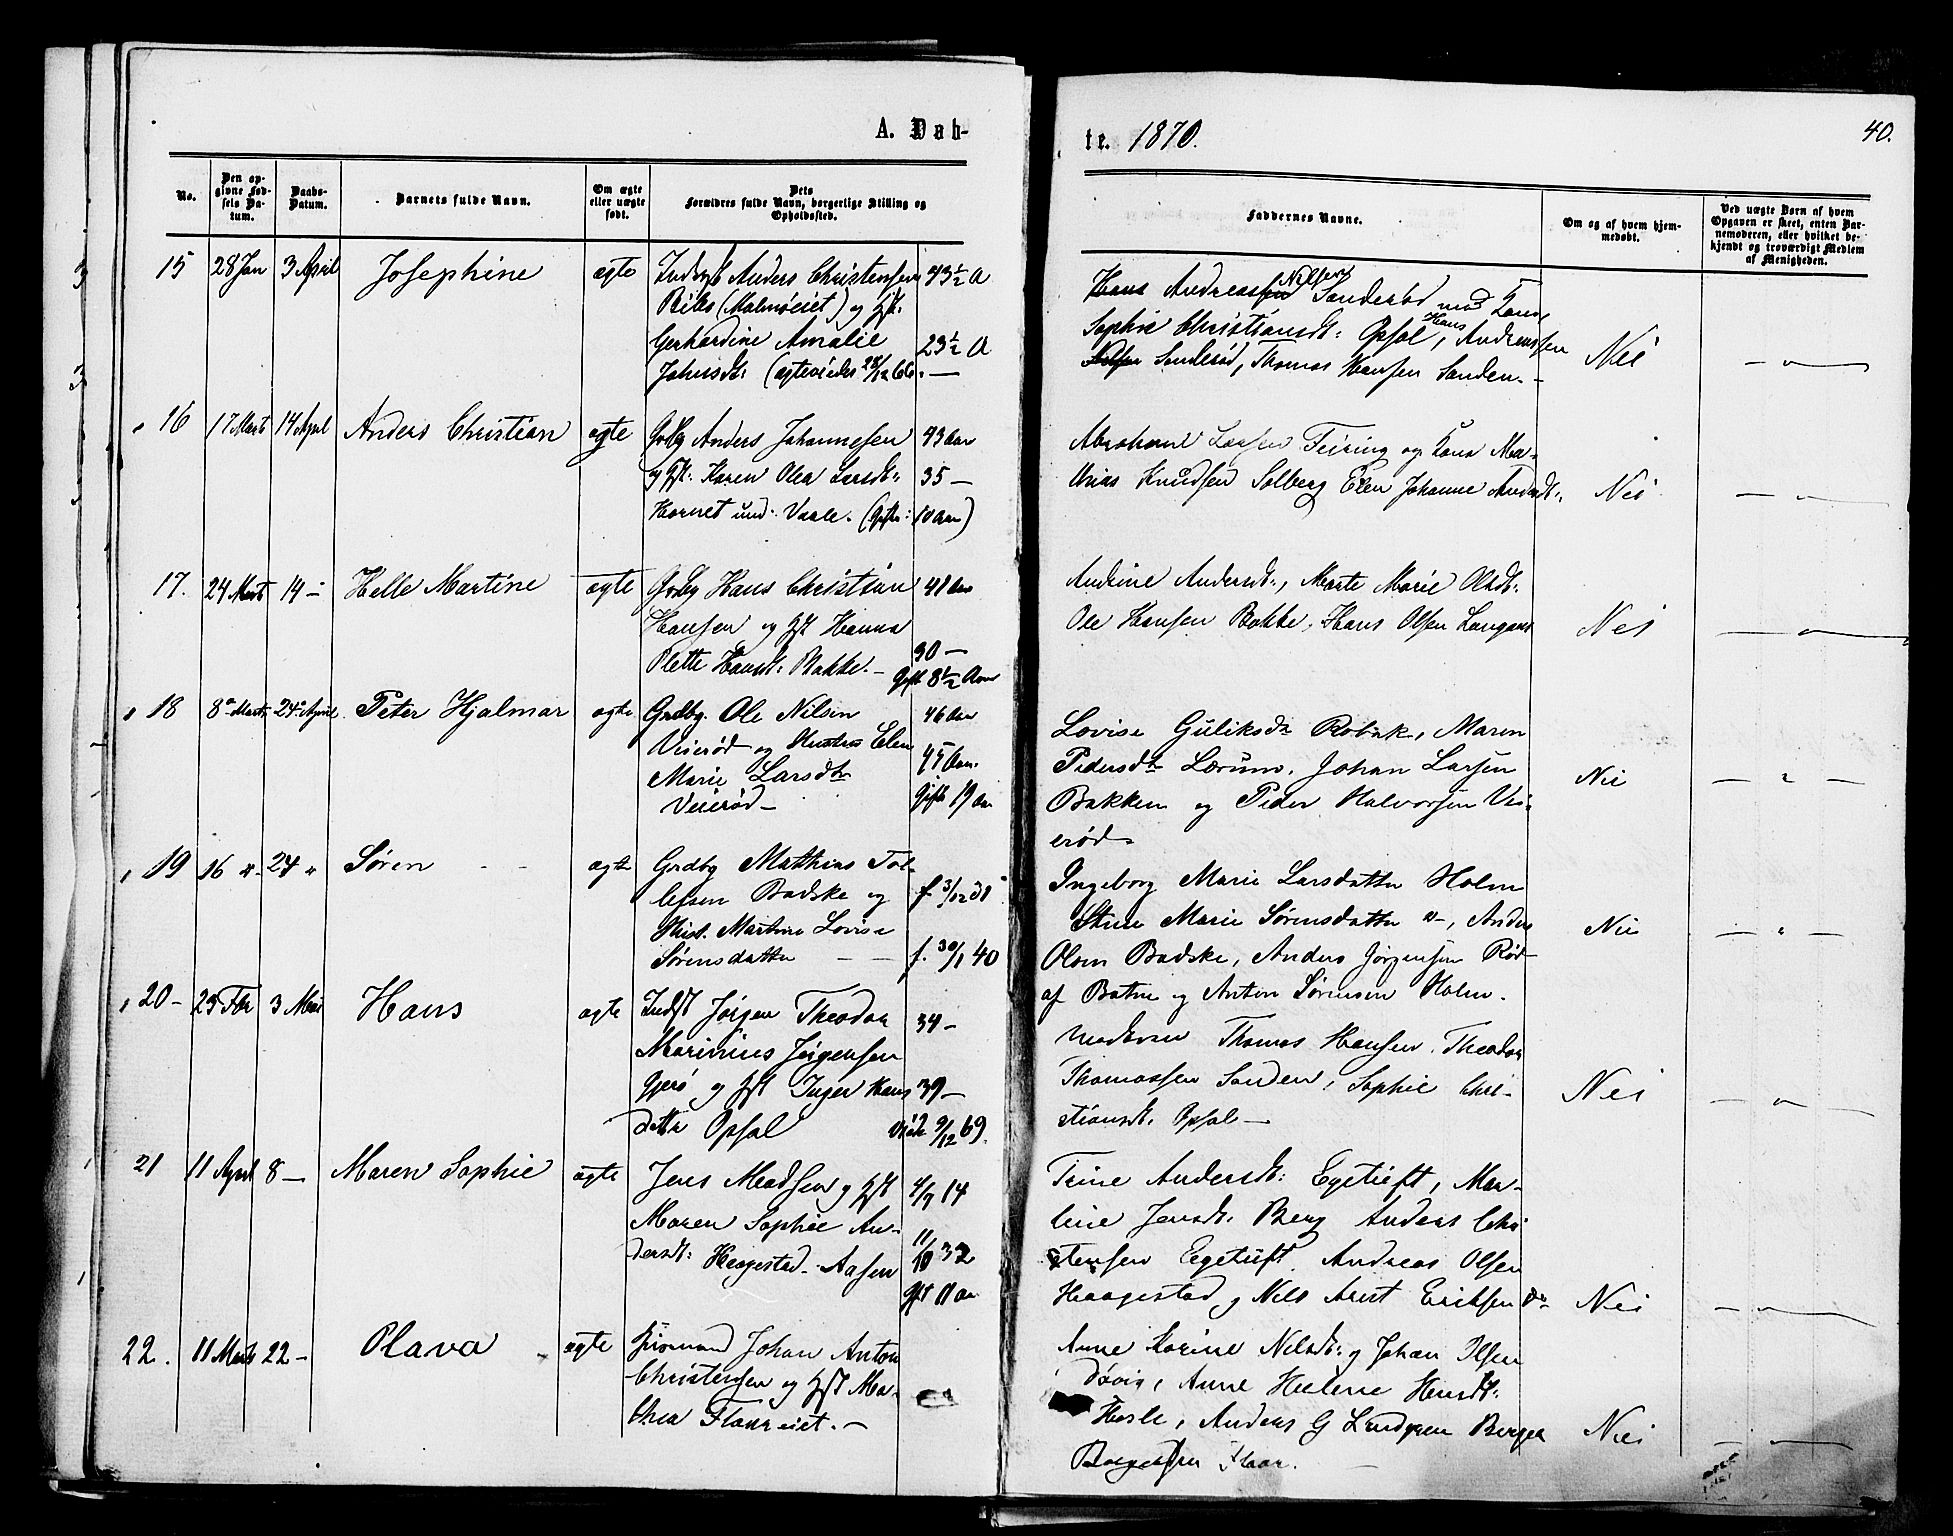 A. Dab-
te. 1870.
40.
No.
Den op-
givne Fød-
sels Da-
tum.
Daabs-
Datum.
Barnets fulde Navn.
Om ægte
eller uægte
født.
Dets
Forældres fulde Navn, borgerlige Stilling og
Opholdssted.
Faddernes Navne.
Om og af hvem hjem-
medøbt.
Ved uægte Børn af hvem
Opgaven er skeet, enten Bar-
nemoderen, eller hvilket be-
kjendt og troværdigt Medlem
af Menigheden.
15 28 Jan 3 April Josephine ægte
Anders Christensen 43½ A
(Malmøeiet) og
Gerhardine Amalie 23½ A
Johnsdt. (ægteviedes 28/12 66. —
Hans Andreassen Nilsen Sanderød med Kone
Sophie Christiansdt: Opsal, Hans Andreassen
Nilsen Sanderød, Thomas Hansen Sanden. -
Nei
16 17 Marts 14 April Anders Christian ægte
Grdbg Anders Johannesen 43 Aar
og Hst: Karen Olea Larsdt: 35 —
Hornet und. Vaale. (Gifte: 10 Aar)
Abraham Larsen Feiring og Kone Ma-
thias Knudsen Solberg Elen Johanne Andersdt.
Nei
17. 24 Marts 14 — Helle Martine ægte
Grdbg Hans Christian 41 Aar
Hansen og Hst Hanna
Olette Hansdt: Bakke. — 30 —
Gift 8½ Aar
Andrine Andersdt., Marte Marie Olsdt.
Ole Hansen Bakke, Hans Olsen Langaas
Nei
18 8de Marts 24de April Peter Hjalmar ægte
Grdbg. Ole Nilsen 46 Aar
Veierød og Hustru Elen 45 Aar.
Marie Larsdtr
Veierød — Gifte 19 Aar
Lovise Guliksdtr Robæk, Maren
Pedersdtr Lærum, Johan Larsen
Bakken og Peder Halvorsen Vei-
erød
Nei
19 16 " 24 " Søren ægte
Grdbg Mathias Tol-
lefsen Badske og f. 3/12 31
Hust. Martine Lovise
Sørensdatter — — f. 30/1 40
Ingeborg Marie Larsdatter Holm
Stine Marie Sørensdatter —, Anders
Olsen Badske, Anders Jørgensen Rød
af Botne og Anton Sørensen Holm.
Nei
20 — 23 Febr 3 Mai Hans ægte
Indst Jørgen Theodor 34 —
Marinius Jørgensen
og Hst Inger Hans 39 —
datter Opsal Viede 9/12 69.
Moderen Thomas Hansen, Theodor
Thomassen Sanden, Sophie Chri-
stiansdt. Opsal —
Nei
21 11 April 8 — Maren Sophie ægte
Jens Madsen og Hst 4/7 14
Maren Sophie An- 11/10 32
dersdt: Haagestad - Aasen
gift 11 Aar
Trine Andersdt: Egetuft, Mar-
tine Jensdt. Berg Anders Chri
stensen Egetuft, Andreas Olsen
Haagestad og Nils Arnt Eriksen do
Nei
22. 11 Marts 22 — Olava ægte
Johan Anton
Christensen og Hst Ma-
thea Flaareiet. —
Anne Karine Nilsdt. og Johan Olsen
Anne Helene Hansdt.
Hesle, Anders G Lindgren Berger
Flaar.
Nei